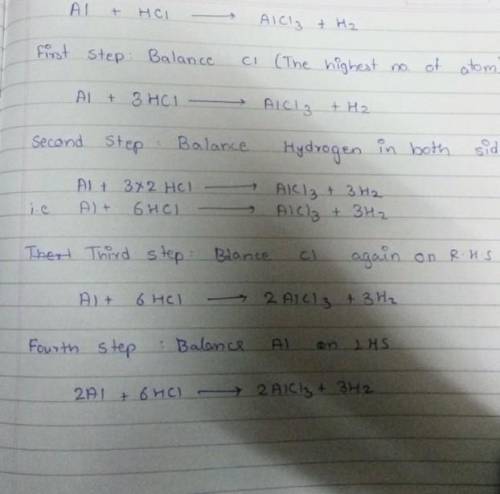 Al + HCl ⟶ AlCl3 + H2
First step: Balance Cl (The highest no of atom)
Al + 3HCl ⟶ AlCl3 + H2
Second step: Balance Hydrogen in both sid
Al + 3×2 HCl ⟶ AlCl3 + 3H2
i.e Al + 6HCl ⟶ AlCl3 + 3H2
Third step: Blance Cl again on R.HS
Al + 6HCl ⟶ 2AlCl3 + 3H2
Fourth step: Balance Al on LHS
2Al + 6HCl ⟶ 2AlCl3 + 3H2